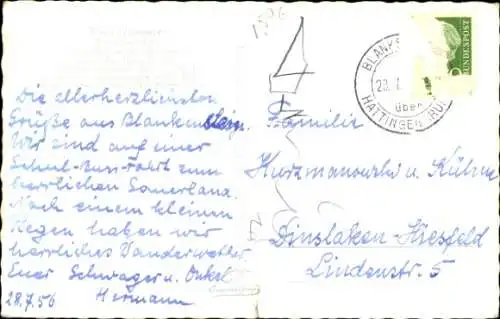 Die allerherzlichsten
Grüße aus Blankenstein.
Wir sind auf einer
Schul-Bus-Fahrt zum
herrlichen Sauerland.
Nach einem kleinen
Regen haben wir
herrliches Wanderwetter.
Euer Schwager u. Onkel
Hermann
28.7.56
BLANKENS
28.7.
über
HATTINGEN (RUHR
BUNDESPOST
Familie
u. Kühne
Dinslaken-Hiesfeld
Lindenstr. 5